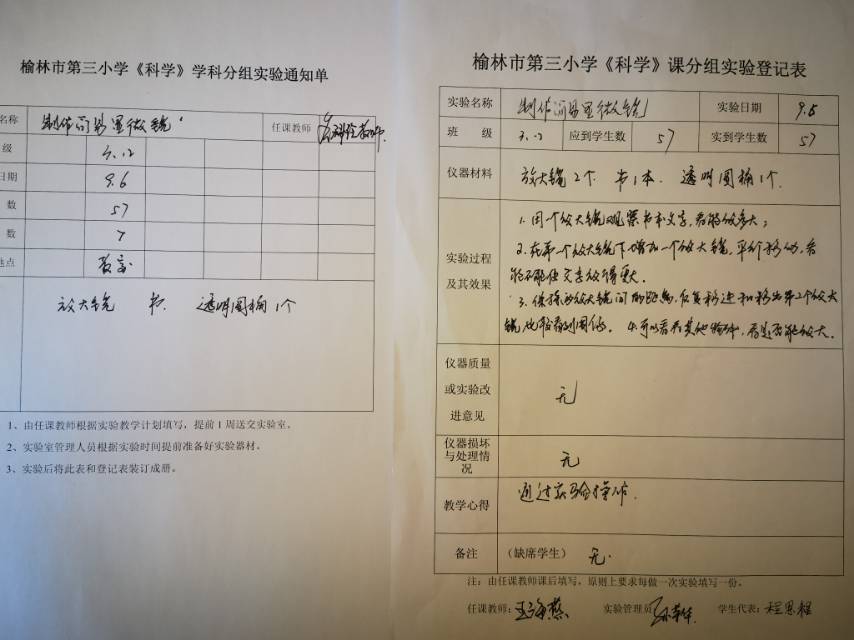 榆林市第三小学《科学》学科分组实验通知单
名称 制作简易显微镜 任课教师
级 3.12
日期 9.6
数 57
数 7
地点 教室
放大镜 书 透明圆桶1个
1、由任课教师根据实验教学计划填写，提前1周送交实验室。
2、实验室管理人员根据实验时间提前准备好实验器材。
3、实验后将此表和登记表装订成册。
榆林市第三小学《科学》课分组实验登记表
实验名称 制作简易显微镜 实验日期 9.6
班 级 3.12 应到学生数 57 实到学生数 57
仪器材料 放大镜2个 书1本. 透明圆桶1个.
实验过程及其效果
1. 用一个放大镜观察书本文字,看能放多大;
2. 在第一个放大镜下增加一个放大镜,平行移动,看
能不能使文字放得更大.
3. 保持两放大镜间的距离,反复移近和移出第2个放大
镜,比较看到图像. 4.可以看看其他物体,看是否能放大.
仪器质量
或实验改
进意见
无
仪器损坏
与处理情
况
无
教学心得 通过实验操作.
备注 (缺席学生) 无.
注：由任课教师课后填写，原则上要求每做一次实验填写一份。
任课教师: 王海燕 实验管理员 学生代表: 程思程